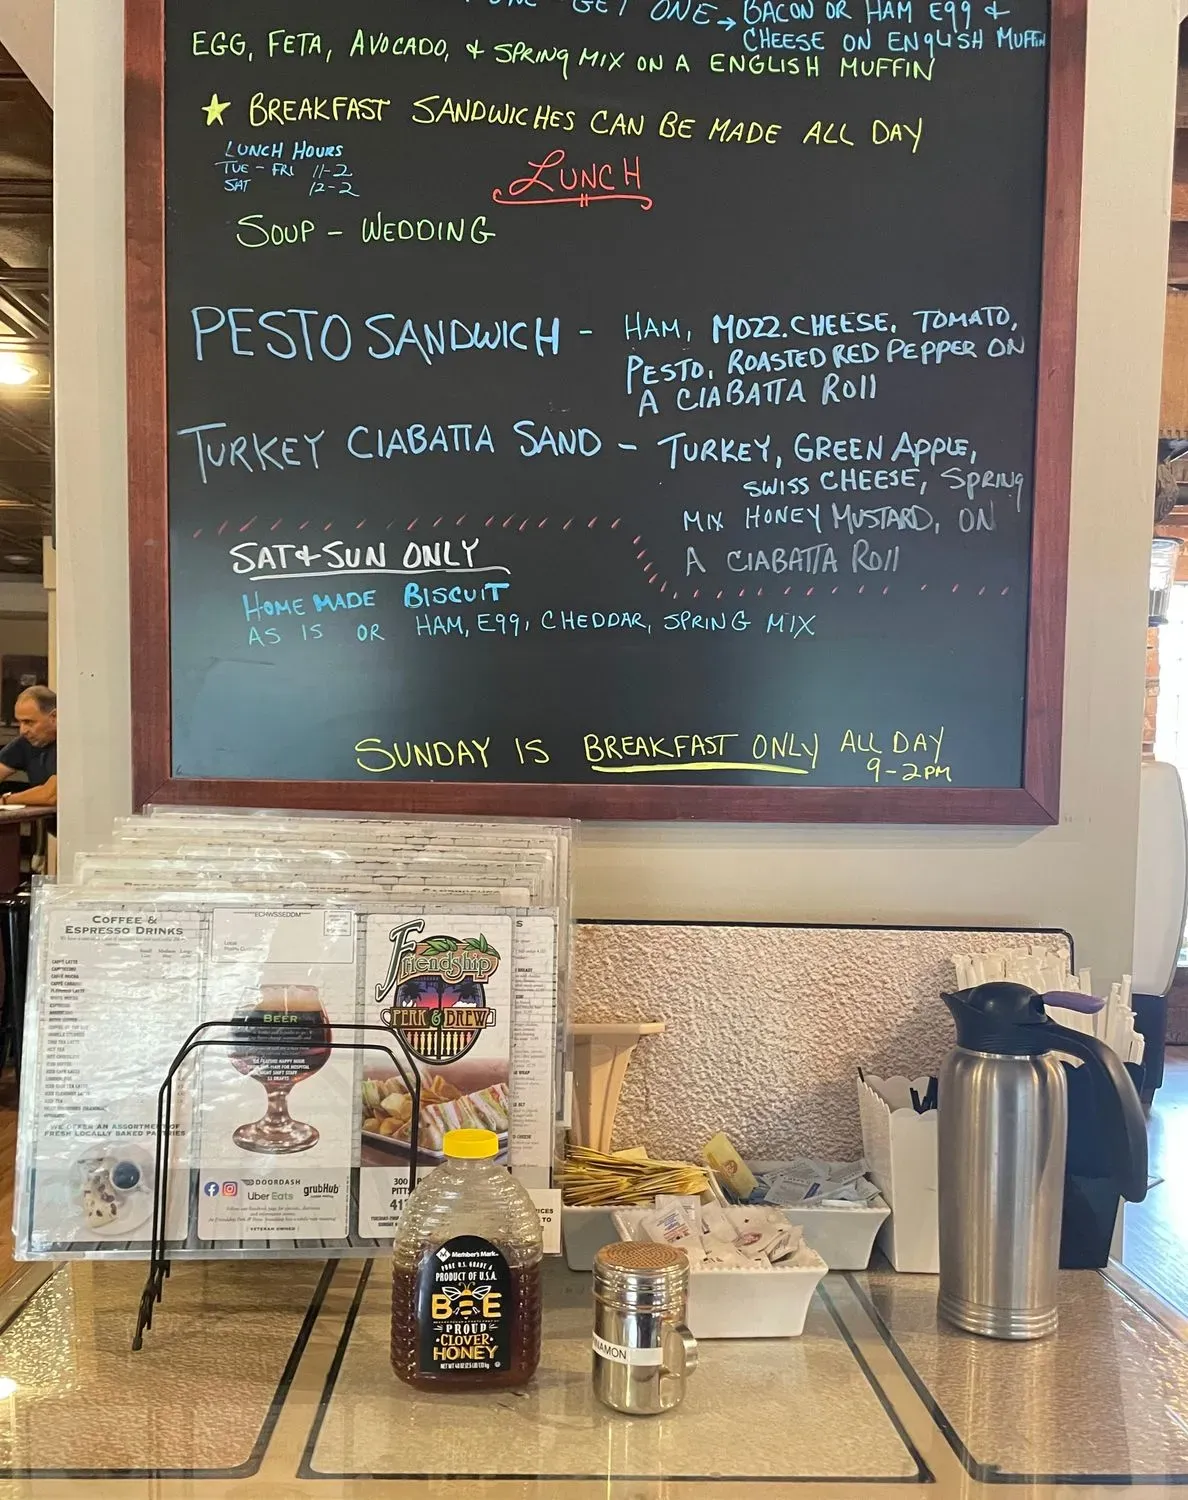 GET ONE → BACON OR HAM EGG &
CHEESE ON ENGLISH MUFFIN
EGG, FETA, AVOCADO, & SPRING MIX ON A ENGLISH MUFFIN
★ BREAKFAST SANDWICHES CAN BE MADE ALL DAY
LUNCH HOURS
TUE - FRI 11-2
SAT 12-2
LUNCH
SOUP - WEDDING
PESTO SANDWICH - HAM, MOZZ. CHEESE, TOMATO,
PESTO, ROASTED RED PEPPER ON
A CIABATTA ROll
TURKEY CIABATTA SAND - TURKEY, GREEN APPLE,
SWISS CHEESE, SPRING
MIX HONEY MUSTARD, ON
A CIABATTA ROll
SAT & SUN ONLY
HOMEMADE BISCUIT
AS IS OR HAM, EGG, CHEDDAR, SPRING MIX
SUNDAY IS BREAKFAST ONLY ALL DAY
9-2PM
COFFEE &
ESPRESSO DRINKS
WE OFFER AN ASSORTMENT OF
FRESH LOCALLY BAKED PASTRIES
ECHWSSEDDM
BEER
DOORDASH
Uber Eats
grubHub
VETERAN OWNED
Friendship
PERK & BREW
300
PITTS
Member's Mark
PURE U.S. GRADE A
PRODUCT OF U.S.A.
BEE
PROUD
CLOVER
HONEY
NAMON